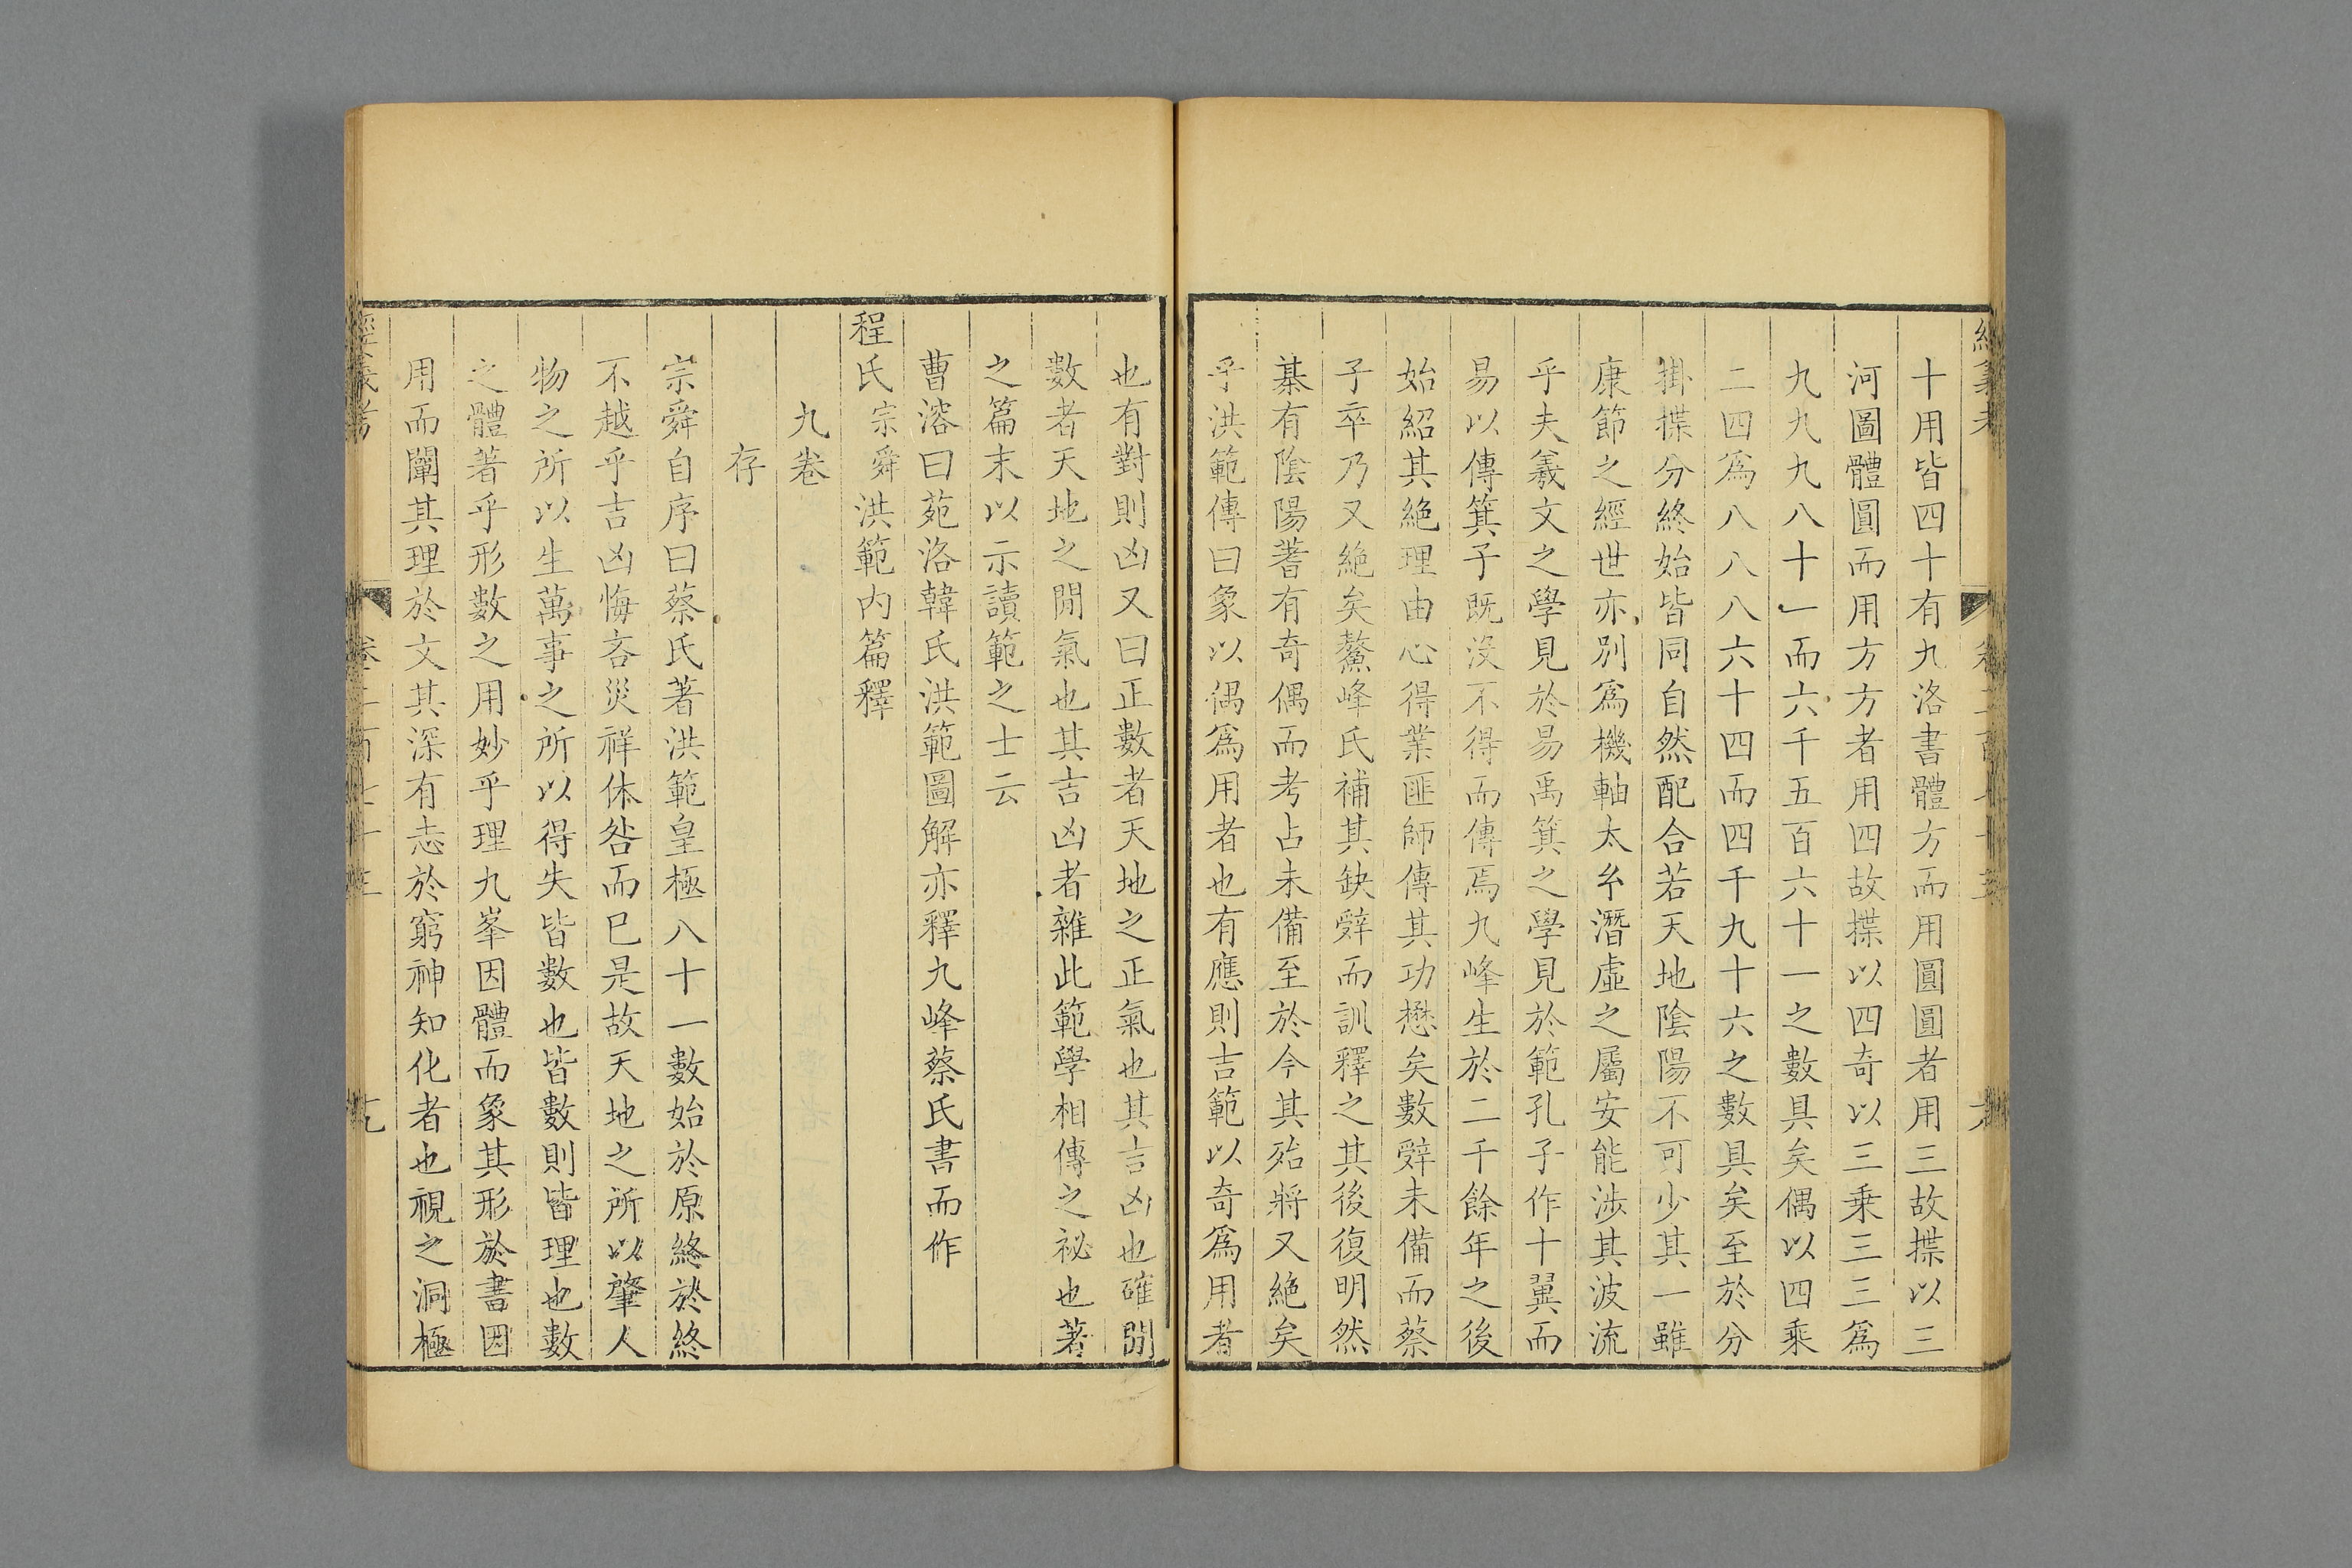 十用皆四十有九洛書體方而用圓圓者用三故揲以三
河圖體圓而用方方者用四故揲以四奇以三乘三三爲
九九九八十一而六千五百六十一之數具矣偶以四乘
二四爲八八八六十四而四千九十六之數具矣至於分
掛揲分終始皆同自然配合若天地陰陽不可少其一雖
康節之經世亦別爲機軸太乆潛虛之屬安能涉其波流
乎夫羲文之學見於易禹箕之學見於範孔子作十翼而
易以傳箕子既沒不得而傳焉九峰生於二千餘年之後
始紹其絶理由心得業匪師傳其功懋矣數辭未備而蔡
子卒乃又絶矣鰲峰氏補其缺辭而訓釋之其後復明然
棊有陰陽蓍有奇偶而考占未備至於今其殆將又絶矣
乎洪範傳曰象以偶爲用者也有應則吉範以奇爲用者
也有對則凶又曰正數者天地之正氣也其吉凶也確閒
數者天地之閒氣也其吉凶者雜此範學相傳之祕也著
之篇末以示讀範之士云
曹溶曰苑洛韓氏洪範圖解亦釋九峰蔡氏書而作
程氏宗舜洪範內篇釋
九卷
存
宗舜自序曰蔡氏著洪範皇極八十一數始於原終於終
不越乎吉凶悔吝災祥休咎而已是故天地之所以肇人
物之所以生萬事之所以得失皆數也皆數則皆理也數
之體著乎形數之用妙乎理九峯因體而象其形於書因
用而闡其理於文其深有志於窮神知化者也視之洞極